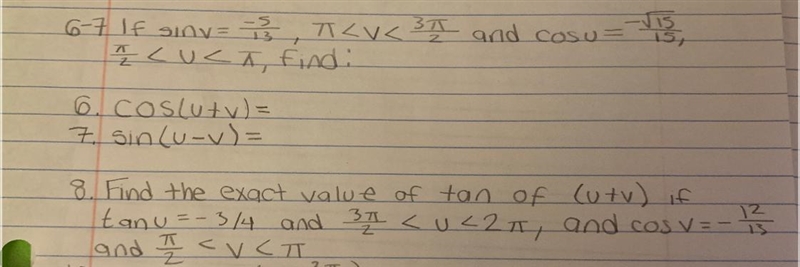 6-7 If sinv = -5/13, π < v < 3π/2 and cosu = -√15/15,
π/2 < u < π, find:
6. cos(u+v) =
7. sin(u-v) =
8. Find the exact value of tan of (u+v) if
tanu = -3/4 and 3π/2 < u < 2π, and cosv = -12/13
and π/2 < v < π